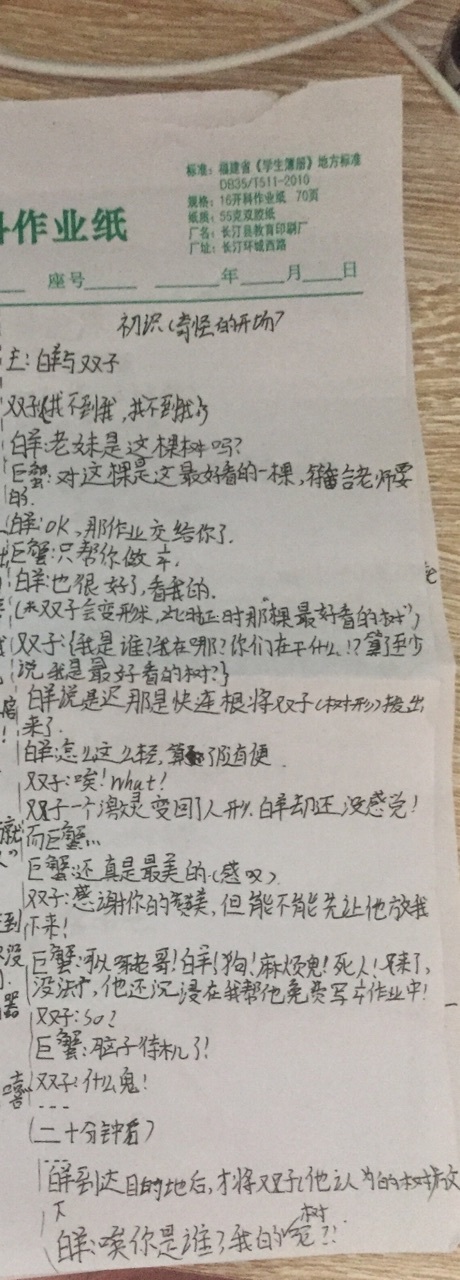 标准：福建省《学生簿册》地方标准
DB35/T511-2010
规格：16开科作业纸 70页
纸质：55克双胶纸
厂名：长汀县教育印刷厂
厂址：长汀环城西路
科作业纸
座号 年 月 日
初识(奇怪的开场)
主：白羊与双子
双子{找不到我，找不到我}
白羊：老妹是这棵树吗?
巨蟹：对这棵是这最好看的一棵，老师要
的.
白羊：OK，那作业交给你了.
巨蟹：只帮你做
白羊：也很好了，看我的.
双子会变形术，此时那"棵最好看的树"
双子：{我是谁?我在哪?你们在干什么!?算了至少
说我是最好看的树?}
白羊说是迟那是快连根将双子(树形)拔出
来了.
白羊：怎么这么轻，算了随便.
双子：唉!What!
双子一个激灵变回了人形.白羊却还没感觉!
而巨蟹…
巨蟹：还真是最美的.(感叹)
双子：感谢你的赞美，但能不能先让他放我
下来!
巨蟹：老哥!白羊!狗!麻烦鬼!死人!
没法子，他还沉浸在我帮他免费写作业中!
双子：So?
巨蟹：脑子待机了!
双子：什么鬼!
---
(二十分钟后)
白羊到达目的地后，才将双子(他认为的树)放
下
白羊：唉你是谁?我的树呢?!